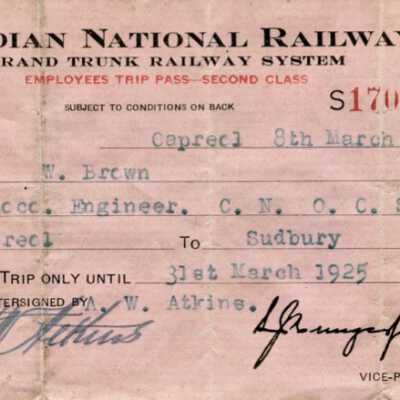 DIAN NATIONAL RAILWAY
RAND TRUNK RAILWAY SYSTEM
EMPLOYEES TRIP PASS—SECOND CLASS
SUBJECT TO CONDITIONS ON BACK
S170
Capreol 8th March
W. Brown
oco. Engineer. C. N. O. C. S
reol TO Sudbury
TRIP ONLY UNTIL 31st March 1925
TERSIGNED BY A. W. Atkins.
Atkins
VICE-P